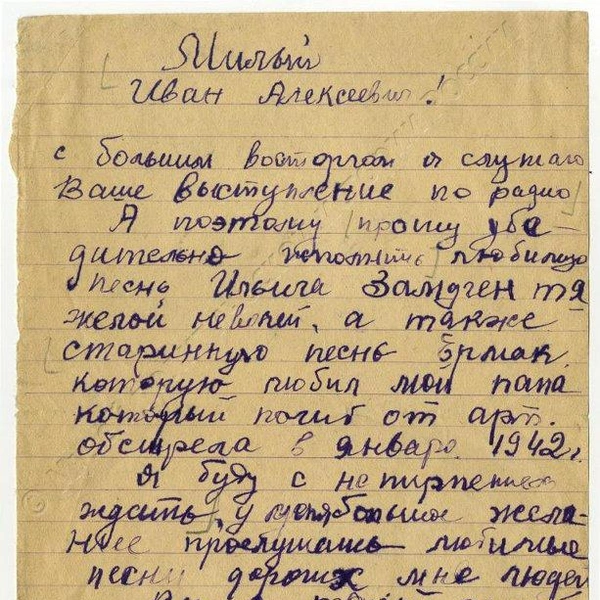 Милый
Иван Алексеевич!
с большим восторгом я слушаю
Ваше выступление по радио
А поэтому прошу убе-
дительно исполнить любимую
песнь Ильича Замучен тя
желой неволей, а также
старинную песнь Ермак,
которую любил мой папа
который погиб от арт.
обстрела в январе 1942 г.
Я буду с нетирпением
ждать, у меня большое жела-
ние прослушать любимые
песни дорогих мне людей